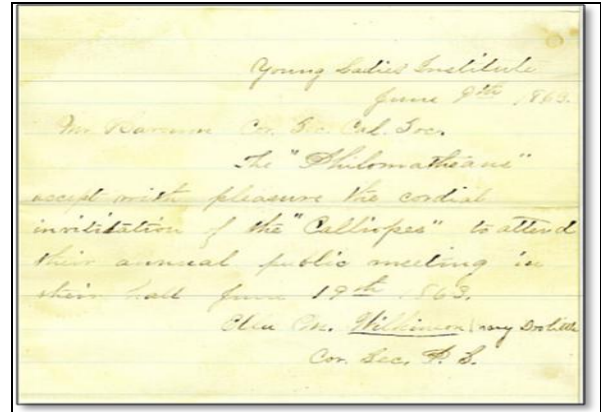 Young Ladies Institute
June 9th 1863.
Mr. Cor. Sec. Cal. Soc.
The "Philomatheans"
accept with pleasure the cordial
invititation of the "Calliopes" to attend
their annual public meeting in
their hall June 19th 1863.
Ella M. Wilkinson (nary Doolittle
Cor. Sec. P. S.